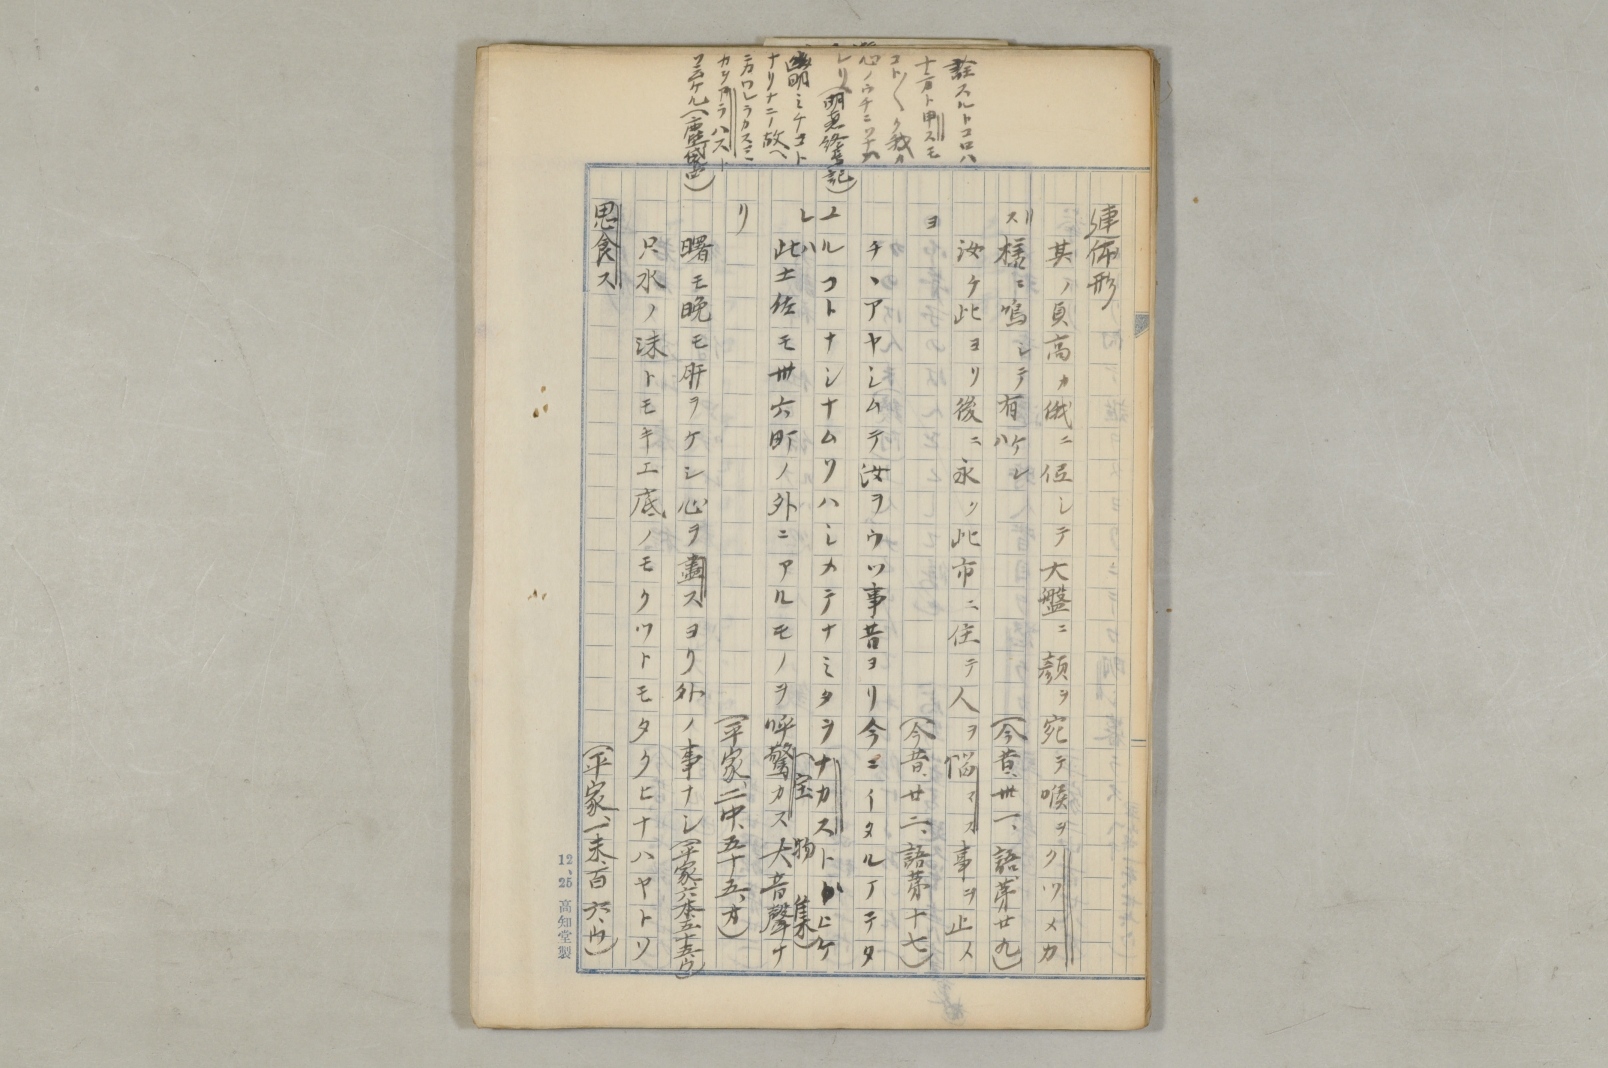 詮スルトコロハ
十方ト申スモ
コト〴〵ク我カ
心ノウチニ
レリ(明恵終書記)
幽明ミチコト
ナリナニノ故ヘ
ニカワレラカスミ
カヲアラハスト
(塵袋四)
連体形
其ノ貞高カ俄ニ低シテ大盤ニ顔ヲ宛テ喉ヲクツメカ
ス様ニ鳴シテ有ケレハ(今昔、卅一、語第廿九)
汝ケ此ヨリ後ニ永ク此市ニ住テ人ヲ悩マス事ヲ止メ
ヨ(今昔、廿二、語第十七)
チヽアヤシムテ汝ヲウツ事昔ヨリ今ニイタルマテタ
ユルコトナシナムソハシメテナミタヲナカストトヒケ
レハ(宝物集)
此土佐モ卅六町ノ外ニアルモノヲ呼驚カス大音聲ナ
リ(平家、二中、五十五、オ)
曙モ晩モ肝ヲケシ心ヲ盡スヨリ外ノ事ナシ(平家六本五十五、ウ)
只水ノ沫トモキエ底ノモクツトモタクヒナハヤトソ
思食ス(平家、一末、百六、ウ)
12、25 高知堂製